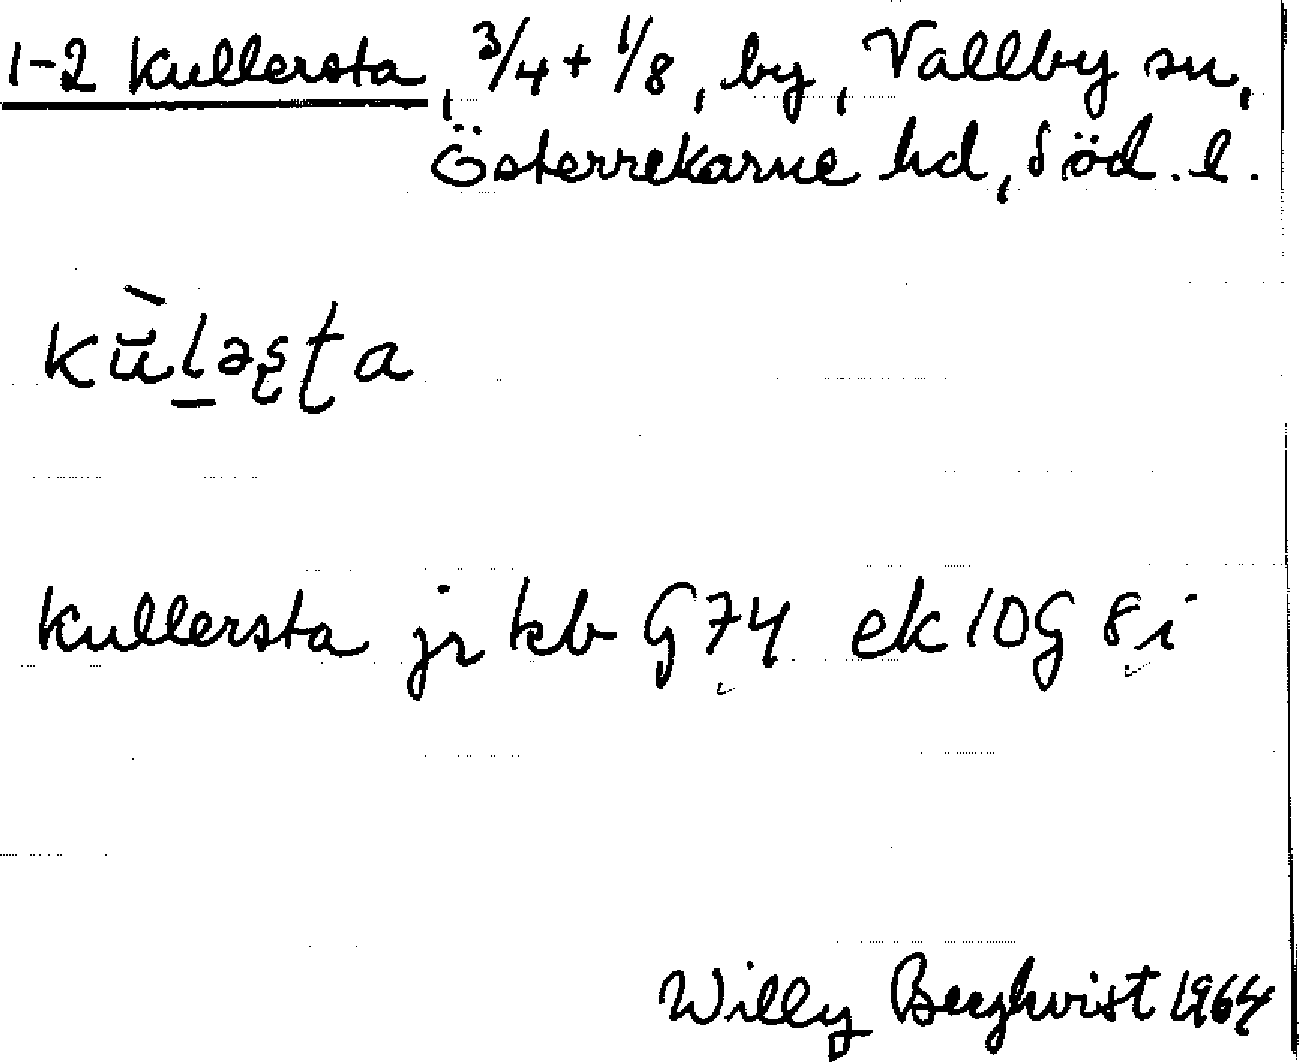 1-2 Kullersta, 3/4 + 1/8, by, Vallby sn,
Österrekarne hd, Söd. l.
kùl̲əʂʈa
Kullersta jr kb G74 ek 10G 8i
Willy Berghvist 1964